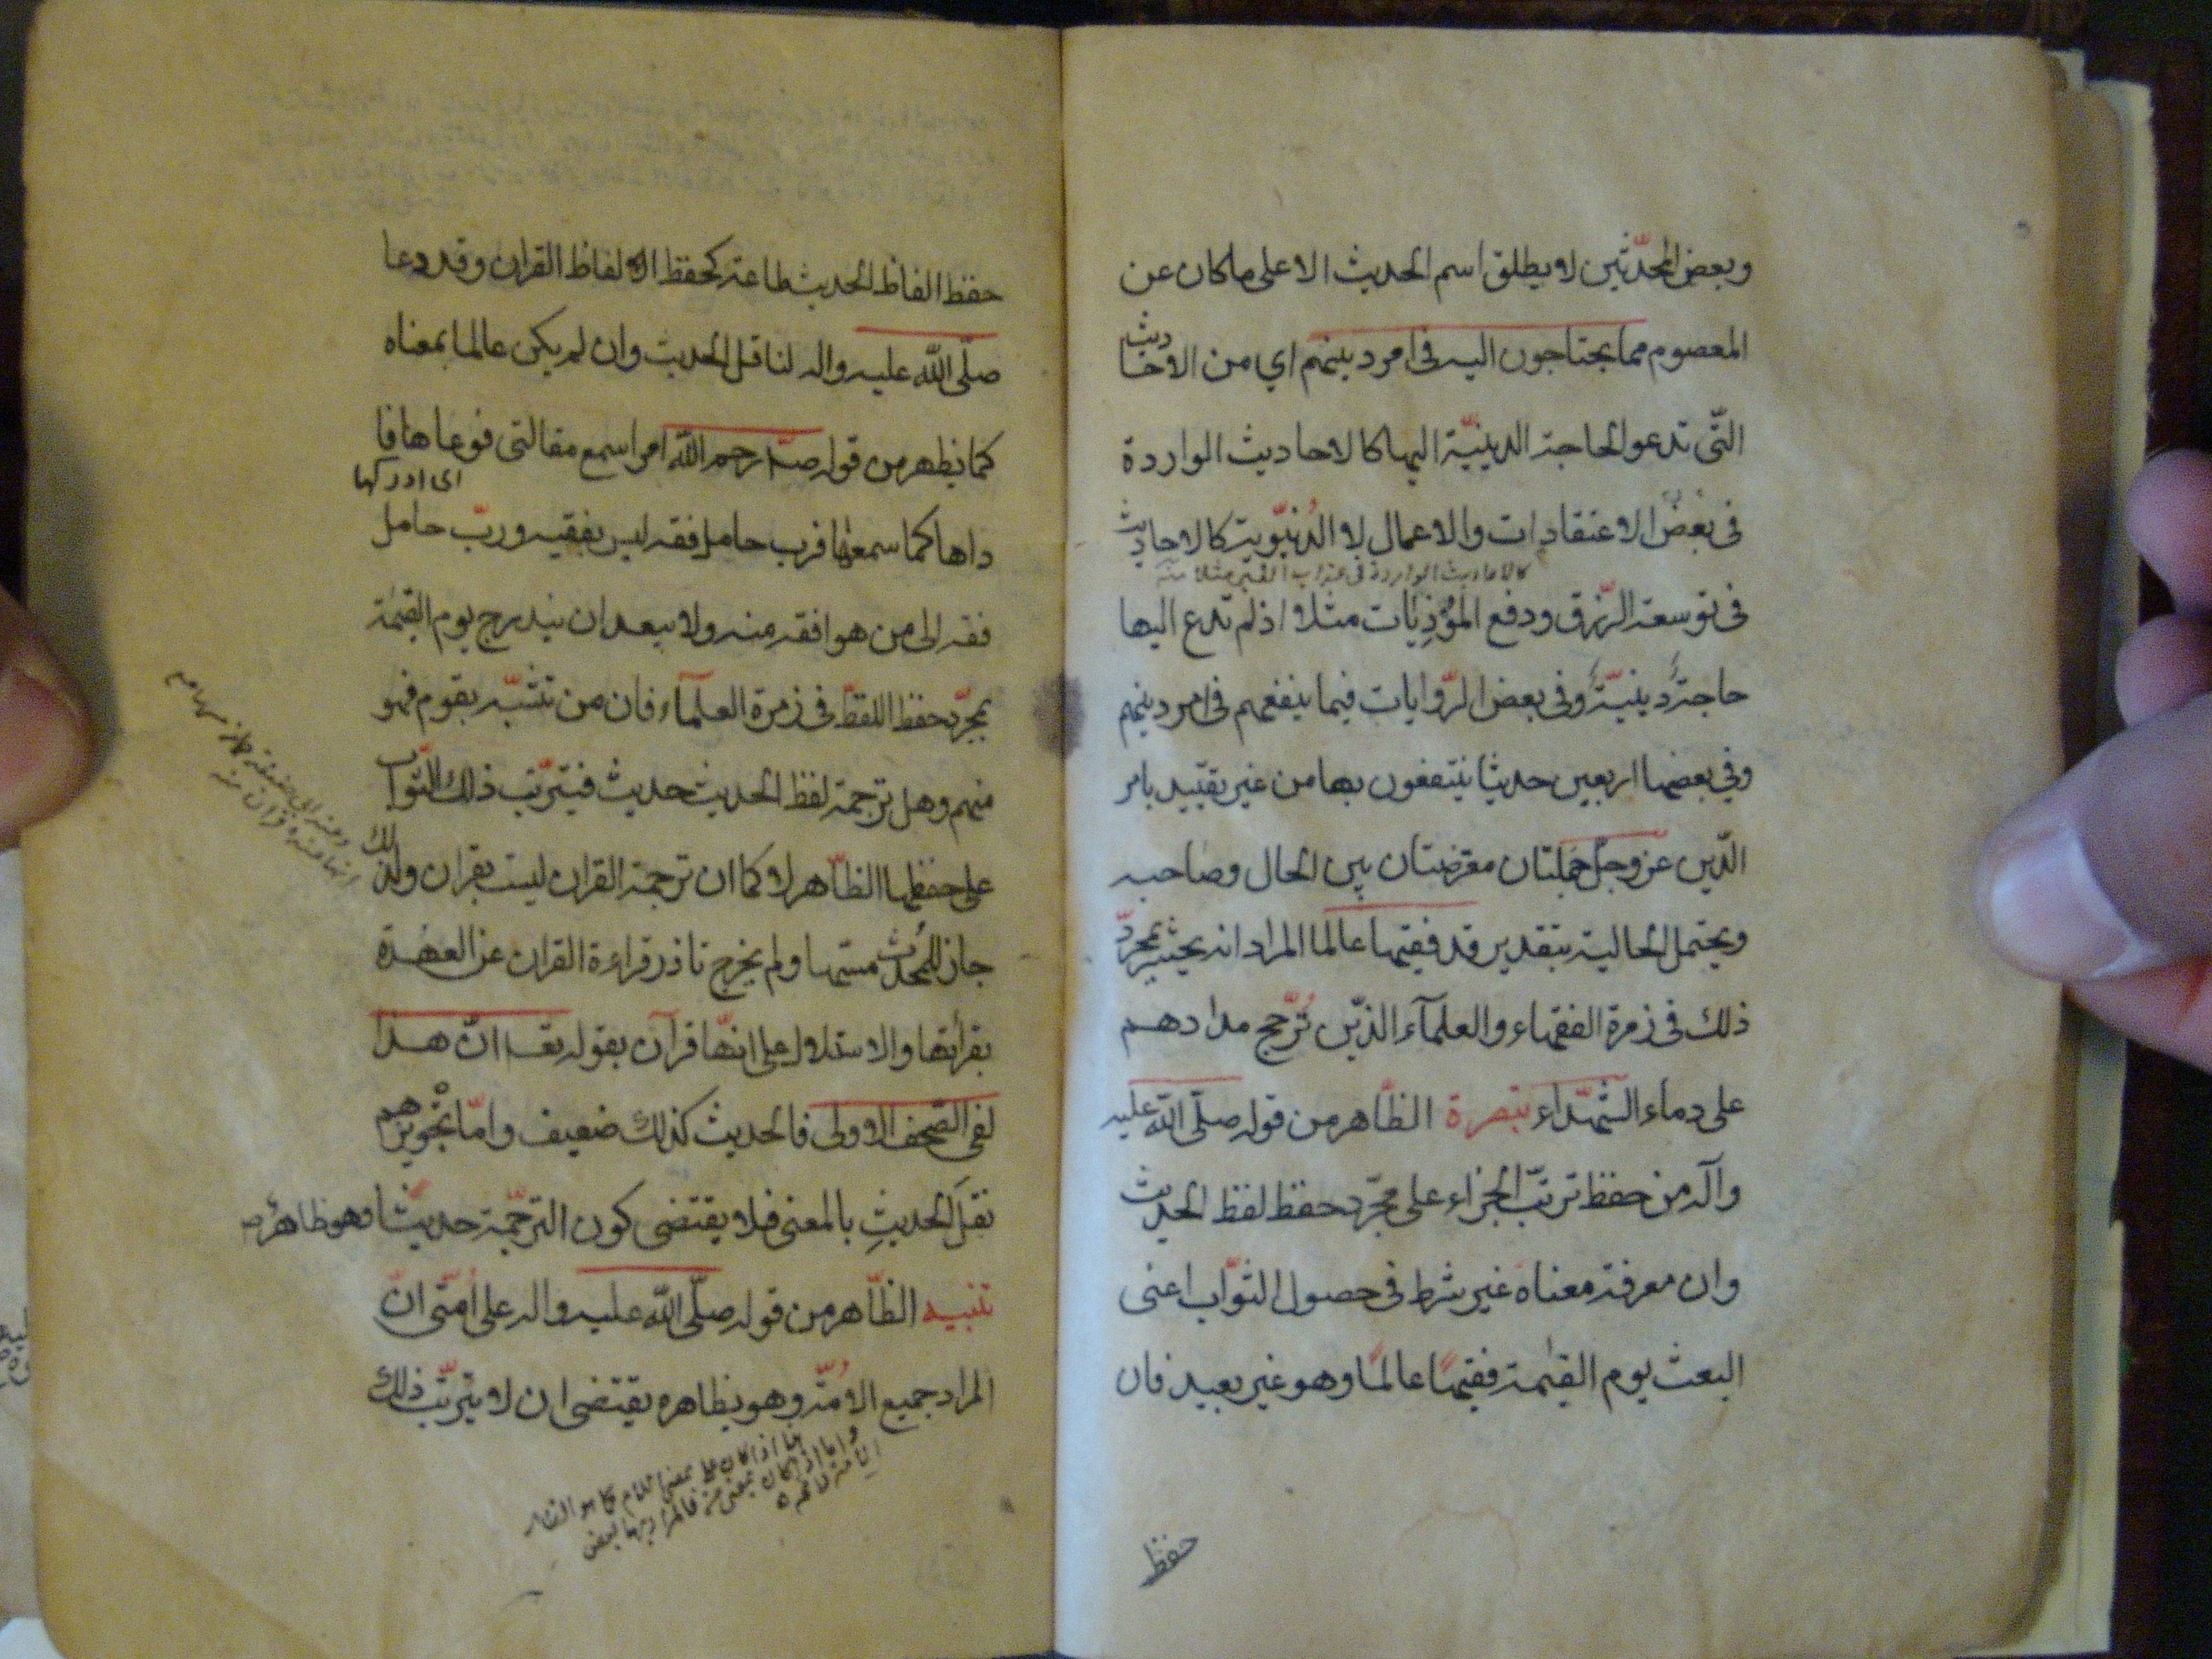 وبعض المحدّثين لا يطلق اسم الحديث الا على ما كان عن
المعصوم مما يحتاجون اليه فى امر دينهم اي من الاحاديث
التّى تدعو الحاجة الدينيّة اليها كالاحاديث الواردة
فى بعض الاعتقادات والاعمال لا الدُنيّوية كالاحاديث
كالاحاديث الواردة فى عذاب القبر مثلا منه
فى توسعة الرّزق ودفع المؤذِيات مثلا اذ لم تدع اليها
حاجة دينيّة وفى بعض الرّوايات فيما ينفعهم فى امر دينهم
وفي بعضها اربعين حديثا ينتفعون بها من غير تقييد بامر
الدّين عز وجلّ جملتان معترضتان بين الحال وصاحبه
ويحتمل الحالية بتقدير قد فقيها عالما المراد انه يحشر بمجرّد
ذلك فى زمرة الفقهاء والعلمآء الذيّن تُرّجح مدادهم
على دماء الشّهداء تبصرة الظّاهر من قوله صلّى اللّه عليه
وآله من حفظ ترتّب الجزاء على مجرّد حفظ لفظ الحديث
وان معرفة معناه غير شرط فى حصول الثوّاب اعنى
البعث يوم القيٰمة فقيهًا عالمًا وهو غير بعيد فان
حفظ
حفظ الفاظ الحديث طاعة كحفظ الالفاظ القران وقد دعا
صلّى اللّه عليه واله لناقل الحديث وان لم يكن عالما بمعناه
كما يظهر من قوله صلّى رحم اللّه امرا سمع مقالتى فوعاها فا
اى ادركها
داها كما سمعها فرب حامل فقه ليس بفقيه وربّ حامل
فقه الى من هو افقه منه ولا يبعد ان يندرج يوم القيٰمة
بمجرّد حفظ اللفظ فى زمرة العلمآء فان من تشبّه بقوم فهو
منهم وهل ترجمة لفظ الحديث حديث فيترتّب ذلك الثوّاب
على حفظها الظّاهر لا كما ان ترجمة القران ليست بقران ولذلك
جاز للمُحدث مسّها ولم يخرج ناذر قراءة القران عن العهدة
بقرأتها والاستدلال على انهّا قرآن بقوله تعا انّ هذا
لفى الصّحف الاولى فالحديث كذلك ضعيف وامّا تجْويزهم
نقلَ الحديثِ بالمعنى فلا يقتضى كون الترجمّة حديثًا وهو ظاهر
تنبيه الظّاهر من قوله صلّى اللّه عليه واله على اُمّتى انّ
المراد جميع الاُمّة وهو بظاهره يقتضى ان لا يترتّب ذلك
هذا اذا كان على بمعنى اللام كما هو الظاهر
واما اذا كان بمعنى من فالمراد بها بعض
الامة فافهم